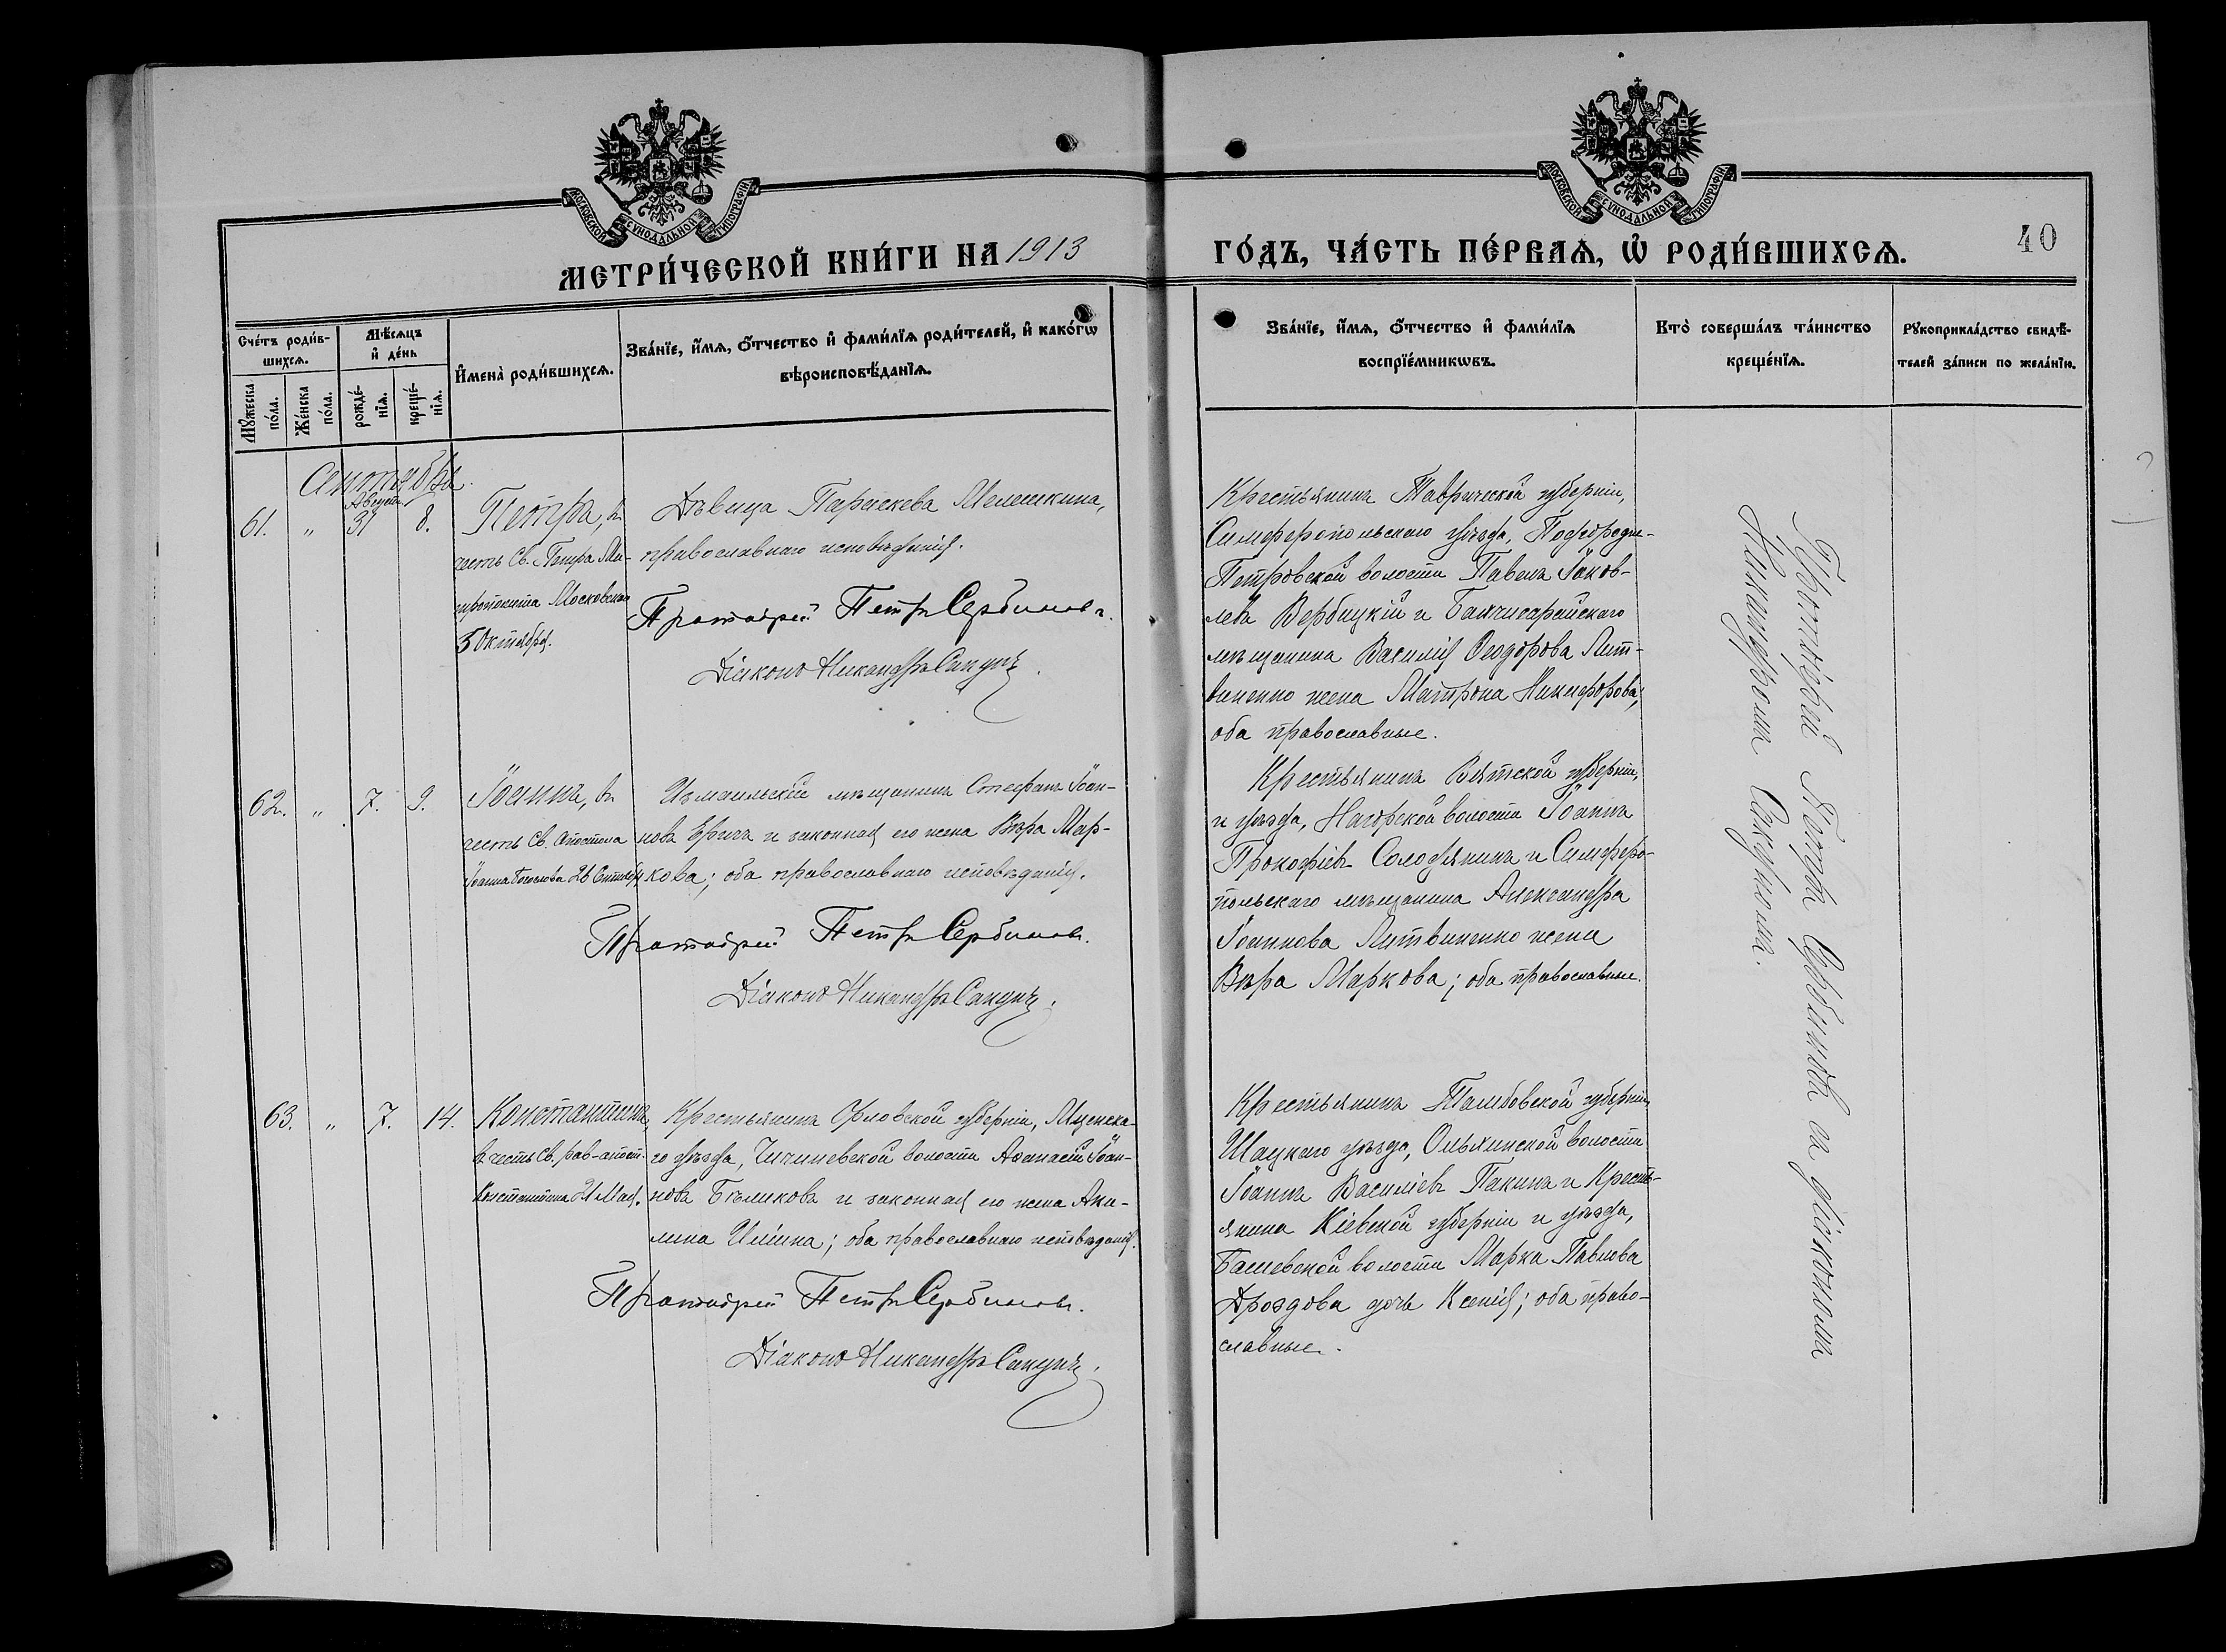 МОСКОВСКОЙ СУНОДАЛЬНОЙ ТИПОГРАФІИ
МОСКОВСКОЙ СУНОДАЛЬНОЙ ТИПОГРАФІИ
МЕТРИ́ЧЕСКОЙ КНИ́ГИ НА 1913
ГО́ДЪ, ЧА́СТЬ ПЕ́РВАѦ, Ѡ҆ РОДИ́ВШИХСѦ.
40
Сче́тъ роди́в-
шихсѧ.
Мѣ́сѧцъ
и҆ де́нь
И҆мена̀ роди́вшихсѧ.
Зва́нїе, и҆́мѧ, ѻ҆́тчество и҆ фами́лїѧ роди́телей, и҆ како́гѡ
вѣроисповѣ́данїѧ.
Мꙋ́жеска
по́ла.
Же́нска
по́ла.
рожде́-
нїѧ.
креще́-
нїѧ.
Зва́нїе, и҆́мѧ, ѻ҆́тчество и҆ фами́лїѧ
воспрїе́мникѡвъ.
Кто̀ соверша́лъ та́инство
креще́нїѧ.
Рꙋкоприкла́дство свидѣ́-
телей за́писи по жела́нїю.
Сентябрь.
Августа
61. " 31 8.
Петръ, въ
честь Св. Петра Ми-
трополита Московскаго
5 Октября.
Дѣвица Параскева Мелешкина,
православнаго исповѣданія.
Протоіерей Петръ Сербиновъ.
Діаконъ Никандръ Сакунъ.
Крестьянинъ Таврической губерніи,
Симферопольскаго уѣзда, Подгородне-
Петровской волости Павелъ Іаков-
левъ Вербицкій и Бахчисарайскаго
мѣщанина Василія Ѳеодорова Лит-
виненко жена Матрона Никифорова;
оба православные.
62. " 7. 9.
Іоаннъ, въ
честь Св. Апостола
Іоанна Богослова 26 Сентября
Измаильскій мѣщанинъ Стефанъ Іоан-
новъ Еричъ и законная его жена Вѣра Мар-
кова; оба православнаго исповѣданія.
Протоіерей Петръ Сербиновъ.
Діаконъ Никандръ Сакунъ.
Крестьянинъ Вятской губерніи,
и уѣзда, Нагорской волости Іоаннъ
Прокофіевъ Солодянкинъ и Симферо-
польскаго мѣщанина Александра
Іоаннова Литвиненко жена
Вѣра Маркова; оба православные.
63. " 7. 14.
Константинъ,
въ честь Св. рав-апост.
Константина 21 Мая.
Крестьянинъ Орловской губерніи, Мценска-
го уѣзда, Аѳанасій Іоан-
новъ Бѣликовъ и законная его жена Аки-
лина Ильина; оба православнаго исповѣданія.
Протоіерей Петръ Сербиновъ.
Діаконъ Никандръ Сакунъ.
Крестьянинъ Тамбовской губерніи,
Шацкаго уѣзда, Ольхинской волости
Іоаннъ Васильевъ Пакинъ и Кресть-
янина Кіевской губерніи и уѣзда,
волости Марка Павлова
Дроздова дочь Ксенія; оба право-
славные.
Протоіерей Петръ Сербиновъ съ діакономъ
Никандромъ Сакуномъ.